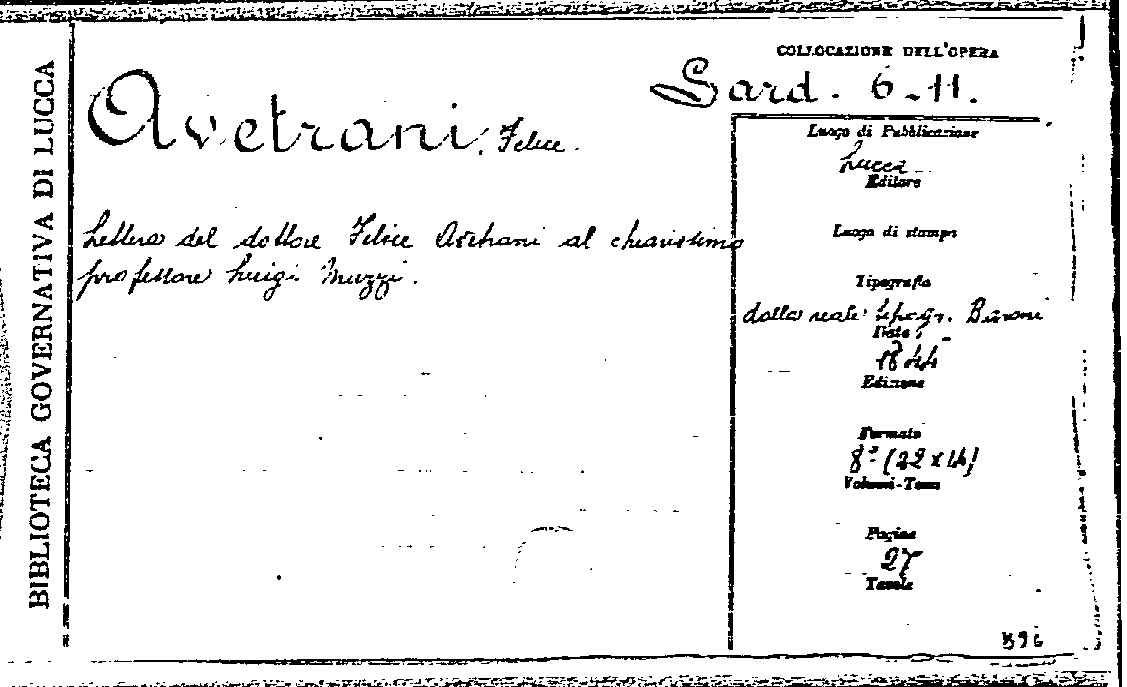 BIBLIOTECA GOVERNATIVA DI LUCCA
COLLOCAZIONE DELL'OPERA
Sard. 6-11.
Avetrani, Felice.
Lettera del dottore Felice Avetrani al chiarissimo
professore Luigi Muzzi.
Luogo di Pubblicazione
Lucca
Editore
Luogo di stampa
Tipografia
dalla reale tipogr. Baroni
Data
1844
Edizione
Formato
8° (22x14)
Volumi-Tomi
Pagine
27
Tavole
596